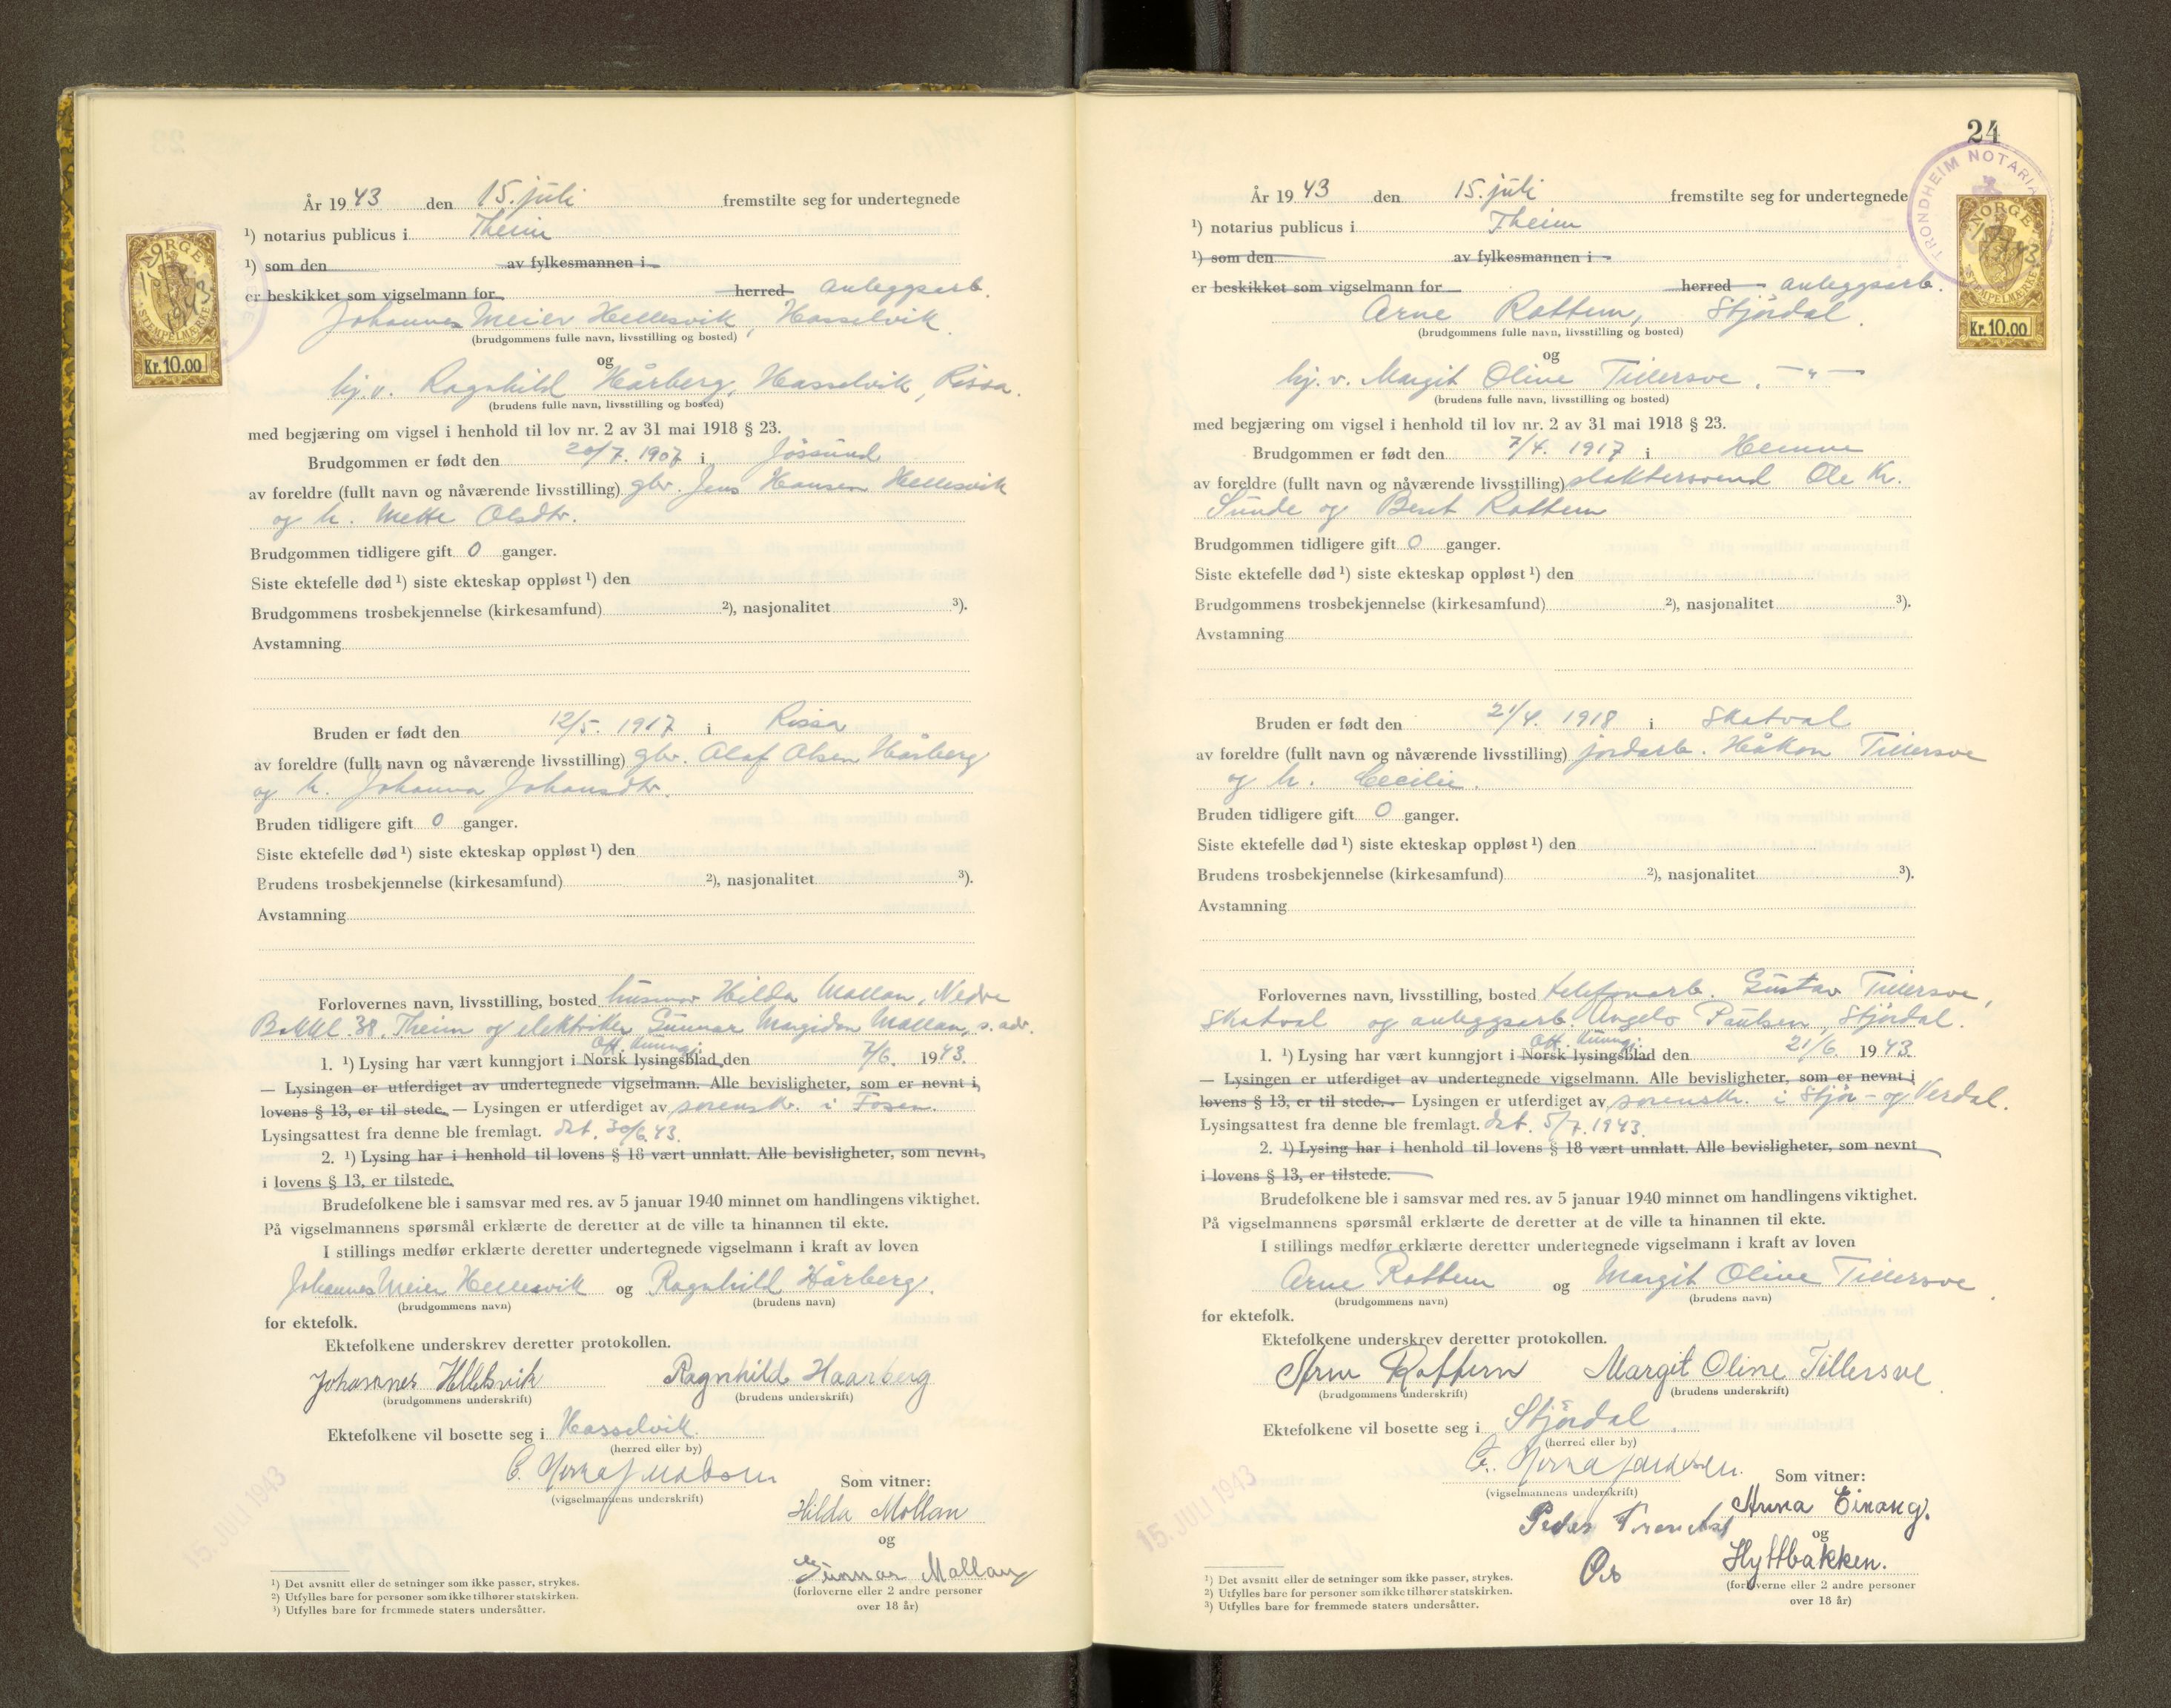 År 1943 den 15. juli fremstilte seg for undertegnede
¹) notarius publicus i Theim
¹) som den av fylkesmannen i
er beskikket som vigselmann for herred anleggsarb.
Johannes Meier Hellesvik, Hasselvik.
(brudgommens fulle navn, livsstilling og bosted)
og
hj.v. Ragnhild Hårberg, Hasselvik, Rissa.
(brudens fulle navn, livsstilling og bosted)
med begjæring om vigsel i henhold til lov nr. 2 av 31 mai 1918 § 23.
Brudgommen er født den 20/7. 1907 i Jössund
av foreldre (fullt navn og nåværende livsstilling) gbr. Jens Hansen Hellesvik
og h. Mette Olsdtr.
Brudgommen tidligere gift 0 ganger.
Siste ektefelle død ¹) siste ekteskap oppløst ¹) den
Brudgommens trosbekjennelse (kirkesamfund) ²), nasjonalitet ³).
Avstamning
Bruden er født den 12/5. 1917 i Rissa
av foreldre (fullt navn og nåværende livsstilling) gbr. Olaf Olsen Hårberg
og h. Johanna Johansdtr.
Bruden tidligere gift 0 ganger.
Siste ektefelle død ¹) siste ekteskap oppløst ¹) den
Brudens trosbekjennelse (kirkesamfund) ²), nasjonalitet ³).
Avstamning
Forlovernes navn, livsstilling, bosted husmor Hilda Mollan, Nedre
Bakkl. 38, Theim og elektriker Gunnar Margidon Mollan, s. adr.
Off. kunngj.
1. ¹) Lysing har vært kunngjort i Norsk lysingsblad den 7/6. 1943.
— Lysingen er utferdiget av undertegnede vigselmann. Alle bevisligheter, som er nevnt i
lovens § 13, er til stede. — Lysingen er utferdiget av sorenskr. i Fosen.
Lysingsattest fra denne ble fremlagt. dat. 30/6.43.
2. ¹) Lysing har i henhold til lovens § 18 vært unnlatt. Alle bevisligheter, som nevnt
i lovens § 13, er tilstede.
Brudefolkene ble i samsvar med res. av 5 januar 1940 minnet om handlingens viktighet.
På vigselmannens spørsmål erklærte de deretter at de ville ta hinannen til ekte.
I stillings medfør erklærte deretter undertegnede vigselmann i kraft av loven
Johannes Meier Hellesvik og Ragnhild Hårberg.
(brudgommens navn) (brudens navn)
for ektefolk.
Ektefolkene underskrev deretter protokollen.
Johannes Hellesvik Ragnhild Haarberg
(brudgommens underskrift) (brudens underskrift)
Ektefolkene vil bosette seg i Hasselvik.
(herred eller by)
(vigselmannens underskrift)
Som vitner:
Hilda Mollan
og
Gunnar Mollan
(forloverne eller 2 andre personer
over 18 år)
15. JULI 1943
¹) Det avsnitt eller de setninger som ikke passer, strykes.
²) Utfylles bare for personer som ikke tilhører statskirken.
³) Utfylles bare for fremmede staters undersåtter.
NORGE
STEMPELMERKE
Kr. 10.00
24
TRONDHEIM NOTARIA
NORGE
STEMPELMERKE
Kr. 10.00
År 1943 den 15. juli fremstilte seg for undertegnede
¹) notarius publicus i Theim
¹) som den av fylkesmannen i
er beskikket som vigselmann for herred anleggsarb.
Arne Rottem, Stjördal.
(brudgommens fulle navn, livsstilling og bosted)
og
hj. v. Margit Oline Tillersve, — " —
(brudens fulle navn, livsstilling og bosted)
med begjæring om vigsel i henhold til lov nr. 2 av 31 mai 1918 § 23.
Brudgommen er født den 7/4. 1917 i Hemne
av foreldre (fullt navn og nåværende livsstilling) slaktersvend Ole Kr.
Sunde og Berit Rottem
Brudgommen tidligere gift 0 ganger.
Siste ektefelle død ¹) siste ekteskap oppløst ¹) den
Brudgommens trosbekjennelse (kirkesamfund) ²), nasjonalitet ³).
Avstamning
Bruden er født den 21/4. 1918 i Skatval
av foreldre (fullt navn og nåværende livsstilling) jordarb. Håkon Tillersve
og h. Cecilie.
Bruden tidligere gift 0 ganger.
Siste ektefelle død ¹) siste ekteskap oppløst ¹) den
Brudens trosbekjennelse (kirkesamfund) ²), nasjonalitet ³).
Avstamning
Forlovernes navn, livsstilling, bosted telefonarb. Gustav Tillersve,
Skatval og anleggsarb. Angelo Paulsen, Stjördal.
Off. kunngj.
1. ¹) Lysing har vært kunngjort i Norsk lysingsblad den 21/6. 1943.
— Lysingen er utferdiget av undertegnede vigselmann. Alle bevisligheter, som er nevnt i
lovens § 13, er til stede. — Lysingen er utferdiget av sorenskr. i Stjör- og Verdal.
Lysingsattest fra denne ble fremlagt. dat. 5/7.1943.
2. ¹) Lysing har i henhold til lovens § 18 vært unnlatt. Alle bevisligheter, som nevnt
i lovens § 13, er tilstede.
Brudefolkene ble i samsvar med res. av 5 januar 1940 minnet om handlingens viktighet.
På vigselmannens spørsmål erklærte de deretter at de ville ta hinannen til ekte.
I stillings medfør erklærte deretter undertegnede vigselmann i kraft av loven
Arne Rottem og Margit Oline Tillersve.
(brudgommens navn) (brudens navn)
for ektefolk.
Ektefolkene underskrev deretter protokollen.
Arne Rottem Margit Oline Tillersve
(brudgommens underskrift) (brudens underskrift)
Ektefolkene vil bosette seg i Stjördal
(herred eller by)
(vigselmannens underskrift)
Som vitner:
Anna Einang.
og
Hyttbakken.
(forloverne eller 2 andre personer
over 18 år)
15. JULI 1943
¹) Det avsnitt eller de setninger som ikke passer, strykes.
²) Utfylles bare for personer som ikke tilhører statskirken.
³) Utfylles bare for fremmede staters undersåtter.